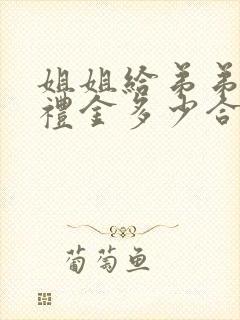 姐姐給弟弟
禮金多少合
葡萄鱼